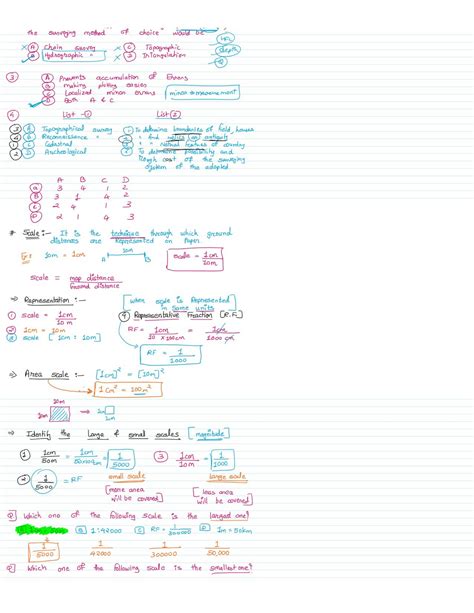 the surveying method "of choice" would be
HFL
(A) Chain survey (C) Topographic
depth
(B) Hydrographic " (D) Triangulation
Q
(3) (A) Prevents accumulation of Errors
(B) making plotting easier
(C) Localized minor errors [minor measurement]
(D) Both A & C
(4) List-(1) List(2)
(3) (A) Topographical survey 1- To determine boundaries of field, houses
(4) (B) Reconnaissance " 2- " find relics (or) antiquity
(1) (C) Cadastral " 3- " " Natural features of country
(2) (D) Archeological " 4- To determine possibility and
rough cost of the surveying
system of the adopted
A B C D
(a) 3 4 1 2
(b) 3 1 4 2
(c) 2 4 1 3
(d) 2 1 4 3
* Scale:- It is the technique through which ground
distances are Represented on Paper.
Ex: 10m = 1cm
10m
A B
scale = 1cm/10m
scale = map distance/Ground distance
⇒ Representation :- [when scale is Represented in same units]
(1) scale = 1cm/10m (4) Representative Fraction [R.F.]
(2) 1cm = 10m RF = 1cm/10×100cm = 1cm/1000cm
(3) scale [1cm : 10m]
RF = 1/1000
⇒ Area scale :- [1cm]² = [10m]²
1cm² = 100m²
10m
10m → 1cm
⇒ Identify the Large & small scales [magnitude]
(1) 1cm/50m = 1cm/50×100cm = 1/5000 (3) 1cm/10m = 1/1000
(2) 1/5000 = RF small scale large scale
[more area will be covered] [less area will be covered]
Q) Which one of the following scale is the largest one?
(B) 1:42000 (C) RF = 1/300000 (D) 1cm = 50km
1/5000 1/42000 1/300000 1/50,000
Q) Which one of the following scale is the smallest one?